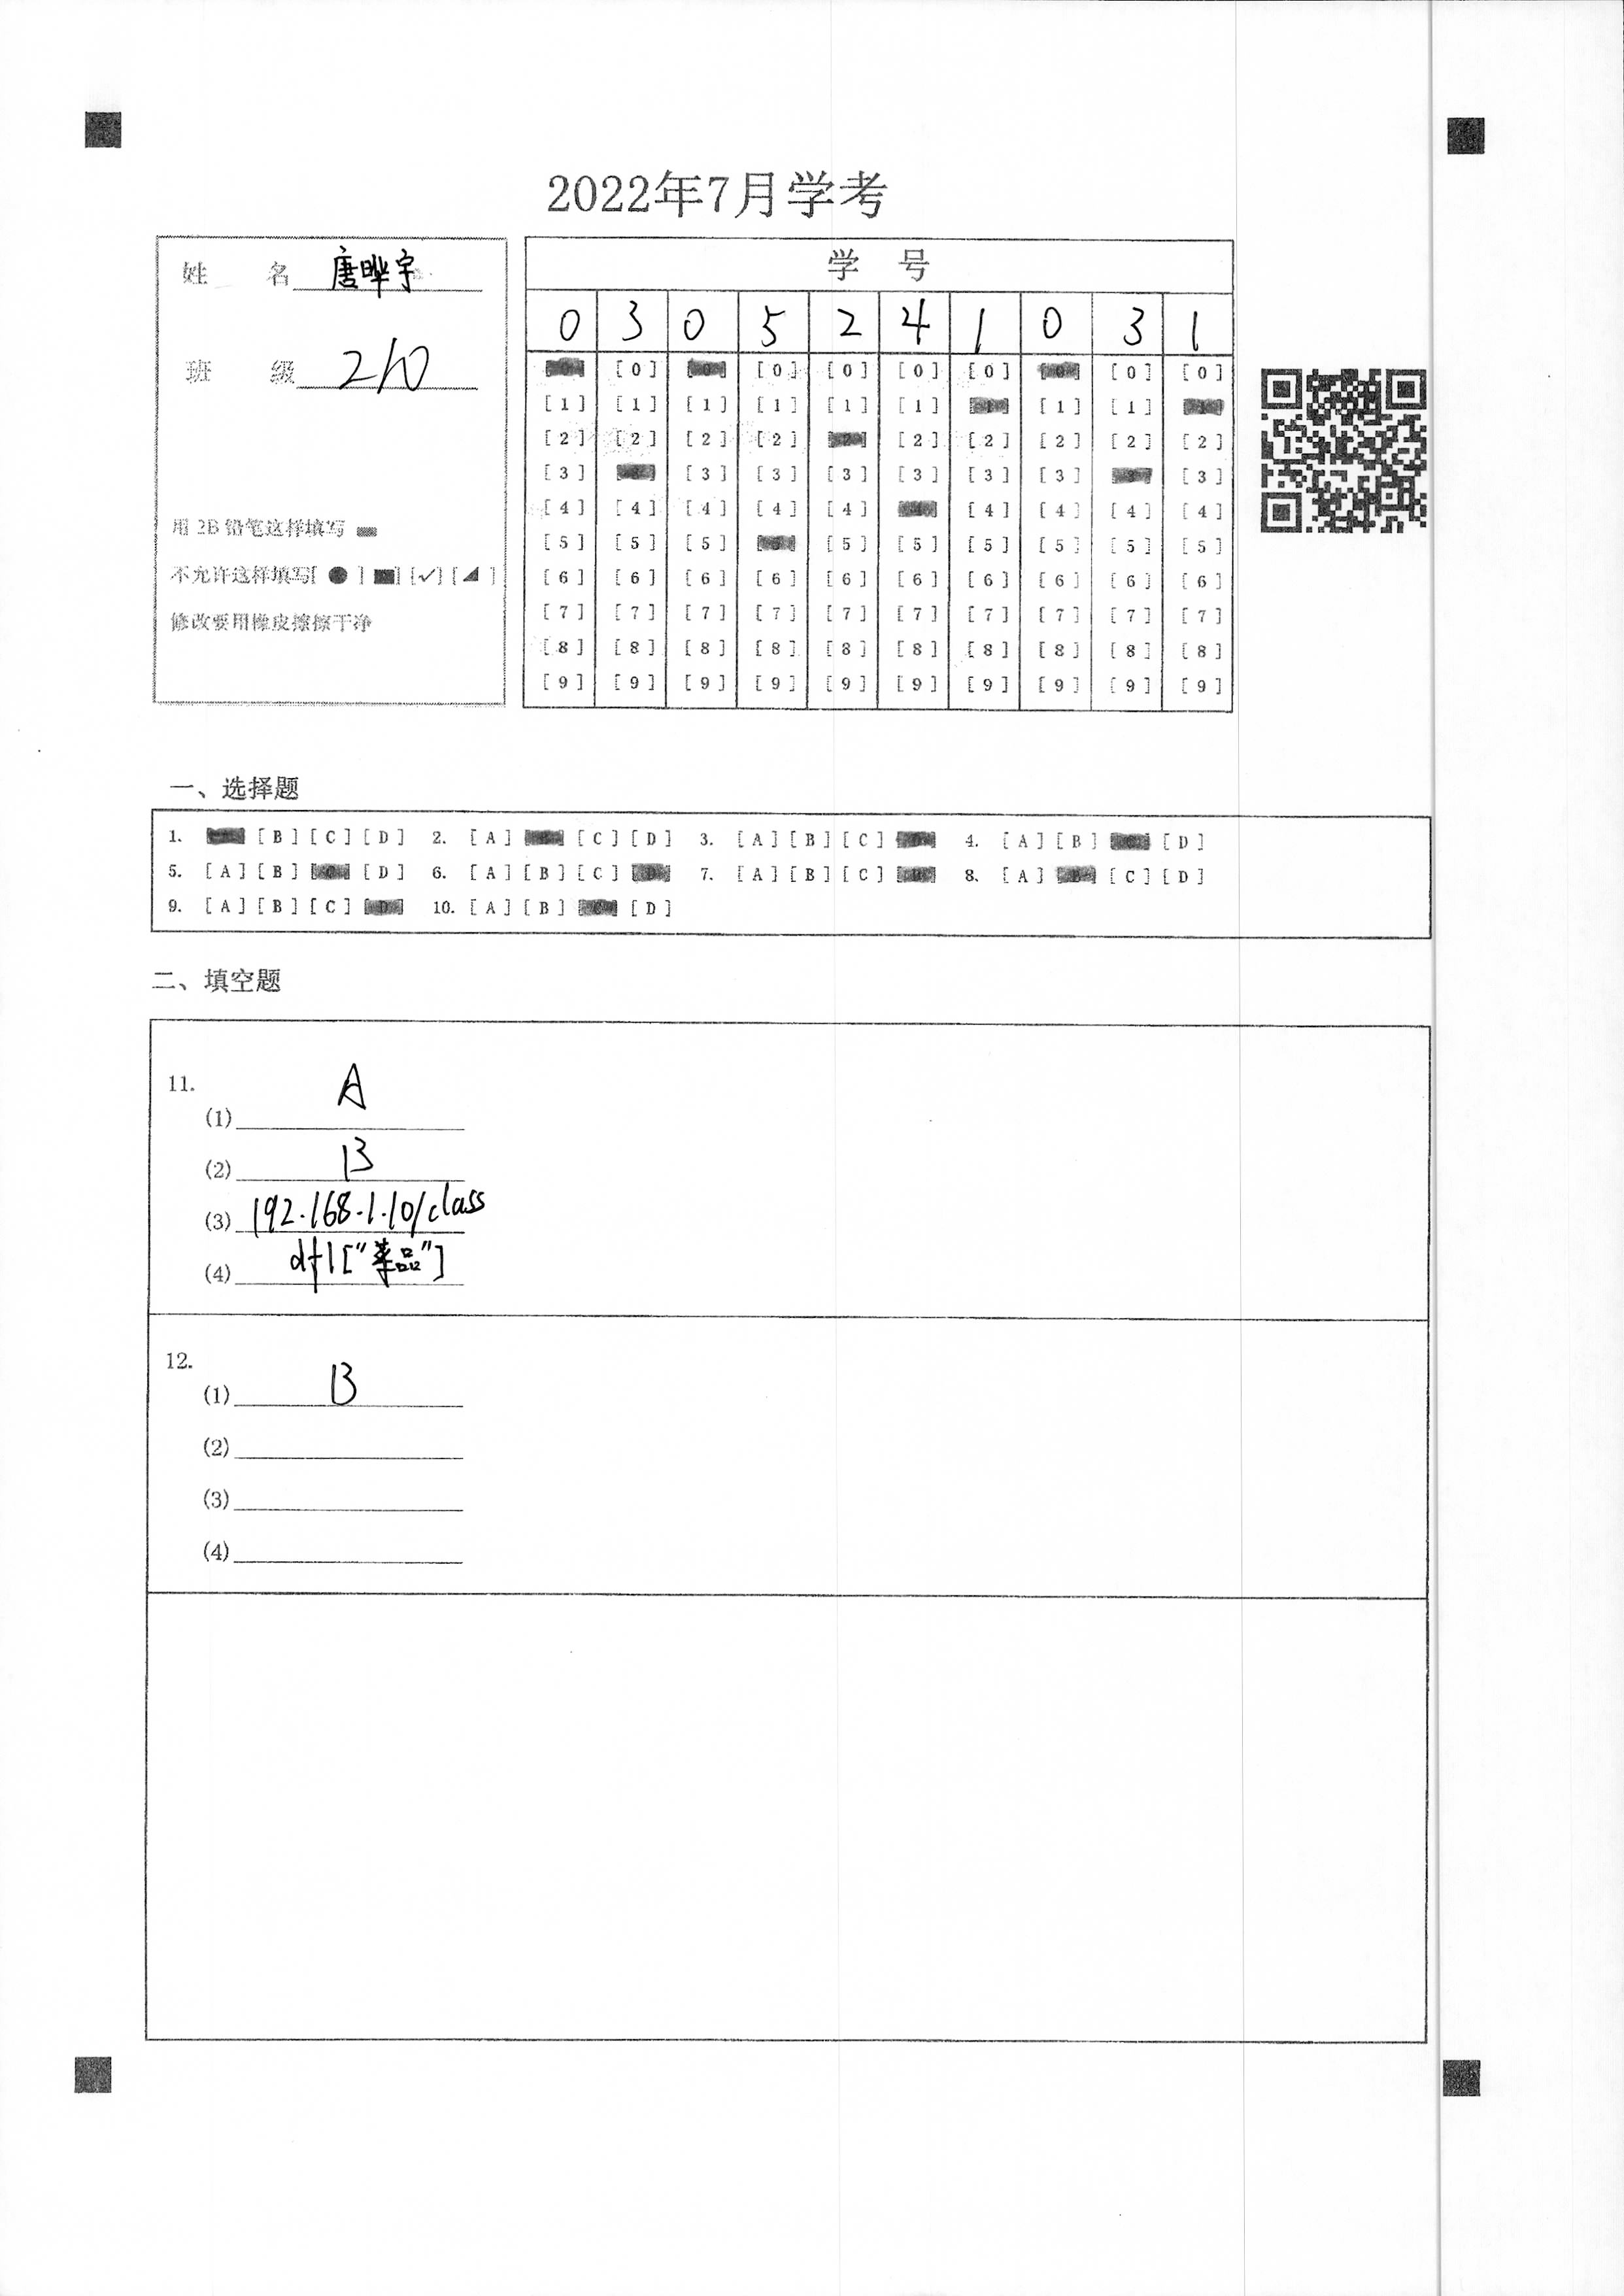 2022年7月学考
姓 名 唐晔宇
班 级 210
用 2B 铅笔这样填写
不允许这样填写[ ● ] ■] [✓] [◢ ]
修改要用橡皮擦擦干净
学 号
0 3 0 5 2 4 1 0 3 1
[0] [0] [0] [0] [0] [0] [0]
[1] [1] [1] [1] [1] [1] [1] [1]
[2] [2] [2] [2] [2] [2] [2] [2] [2]
[3] [3] [3] [3] [3] [3] [3] [3]
[4] [4] [4] [4] [4] [4] [4] [4] [4]
[5] [5] [5] [5] [5] [5] [5] [5] [5]
[6] [6] [6] [6] [6] [6] [6] [6] [6] [6]
[7] [7] [7] [7] [7] [7] [7] [7] [7] [7]
[8] [8] [8] [8] [8] [8] [8] [8] [8] [8]
[9] [9] [9] [9] [9] [9] [9] [9] [9] [9]
一、选择题
1. [B] [C] [D] 2. [A] [C] [D] 3. [A] [B] [C] 4. [A] [B] [D]
5. [A] [B] [D] 6. [A] [B] [C] 7. [A] [B] [C] 8. [A] [C] [D]
9. [A] [B] [C] 10. [A] [B] [D]
二、填空题
11.
(1) A
(2) B
(3) 192.168.1.10/class
(4) df1["菜品"]
12.
(1) B
(2)
(3)
(4)